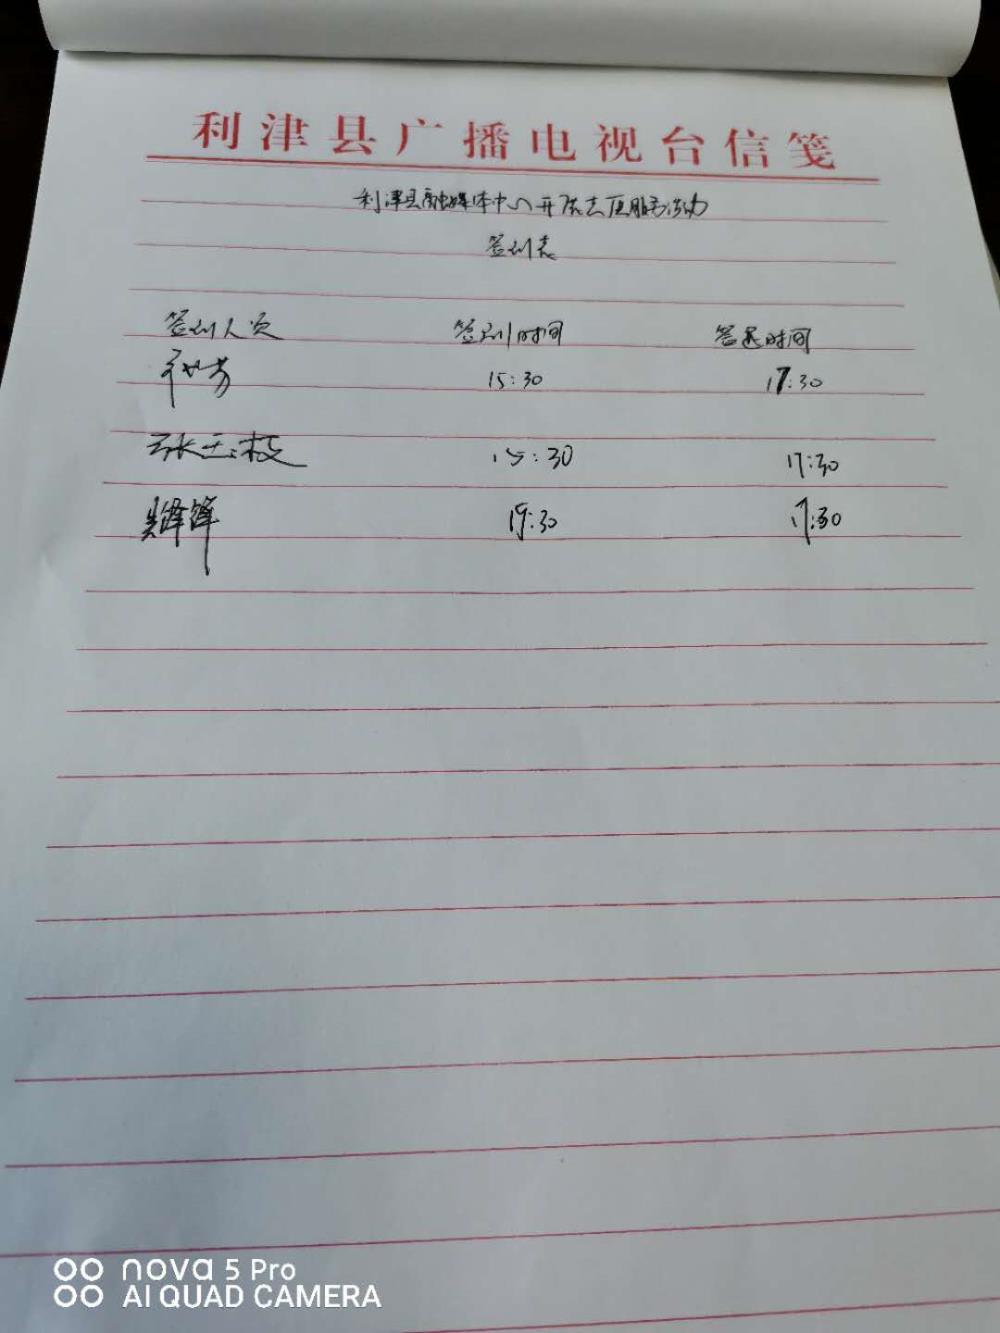 利津县广播电视台信笺
利津县融媒体中心开展志愿服务活动
签到表
签到人员 签到时间 签退时间
15:30 17:30
张玉枝 15:30 17:30
:30 17:30
nova 5 Pro
AI QUAD CAMERA